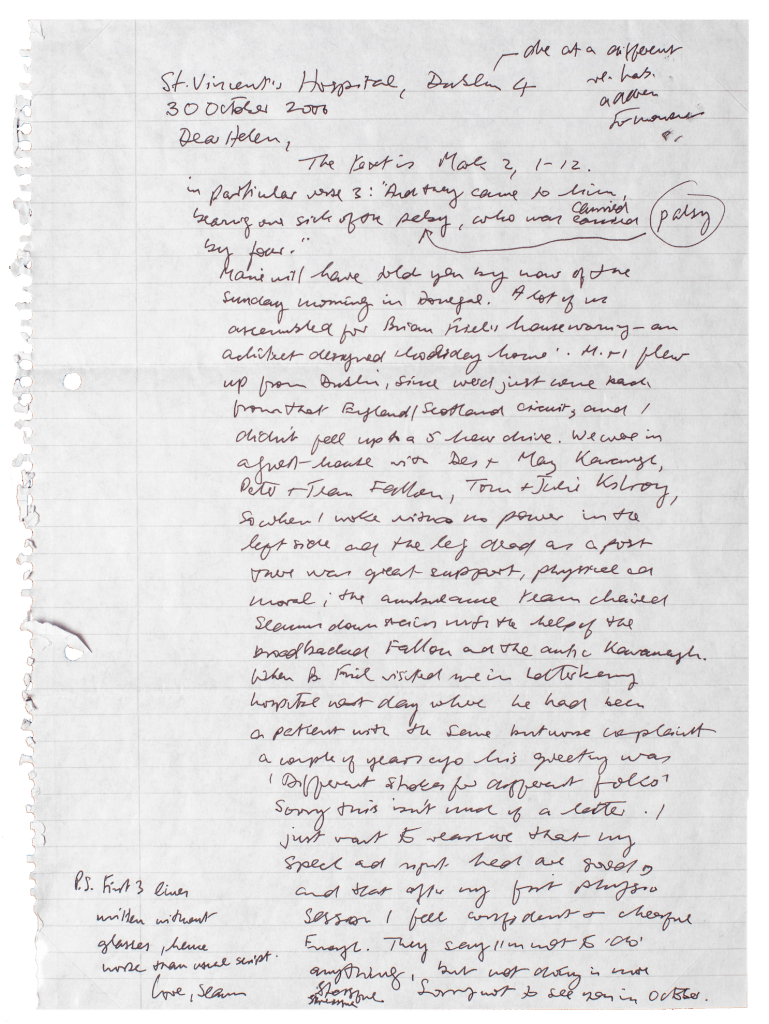 one at a different
St. Vincent's Hospital, Dublin 4
re. hab.
address
tomorrow
30 October 2006
Dear Helen,
The text is Mark 2, 1-12.
in particular verse 3: "And they came to him,
bearing one sick of the palsy, who was carried
palsy
by four."
Marie will have told you by now of the
Sunday morning in Donegal. A lot of us
assembled for Brian Friel's housewarming - an
architect designed 'holiday home'. M. + I flew
up from Dublin, since we'd just come back
from that England/Scotland circuit, and I
didn't feel up to a 5 hour drive. We were in
a guest-house with Des + Mary Kavanagh,
Peter + Jean Fallon, Tom + Julie Kilroy,
so when I woke with no power in the
left side and the leg dead as a post
there was great support, physical and
moral; the ambulance team chaired
Seamus downstairs with the help of the
broadbacked Fallon and the antic Kavanagh.
When B. Friel visited me in Letterkenny
hospital next day where he had been
a patient with the same but worse complaint
a couple of years ago his greeting was
'Different strokes for different folks'
Sorry this isn't much of a letter. I
just want to reassure that my
speech and right hand are good,
and that after my first physio
session I feel confident + cheerful
enough. They say I'm not to 'do'
anything, but not doing is more
stressful Sorry not to see you in October.
stressful
P.S. First 3 lines
written without
glasses, hence
worse than usual script.
Love, Seamus